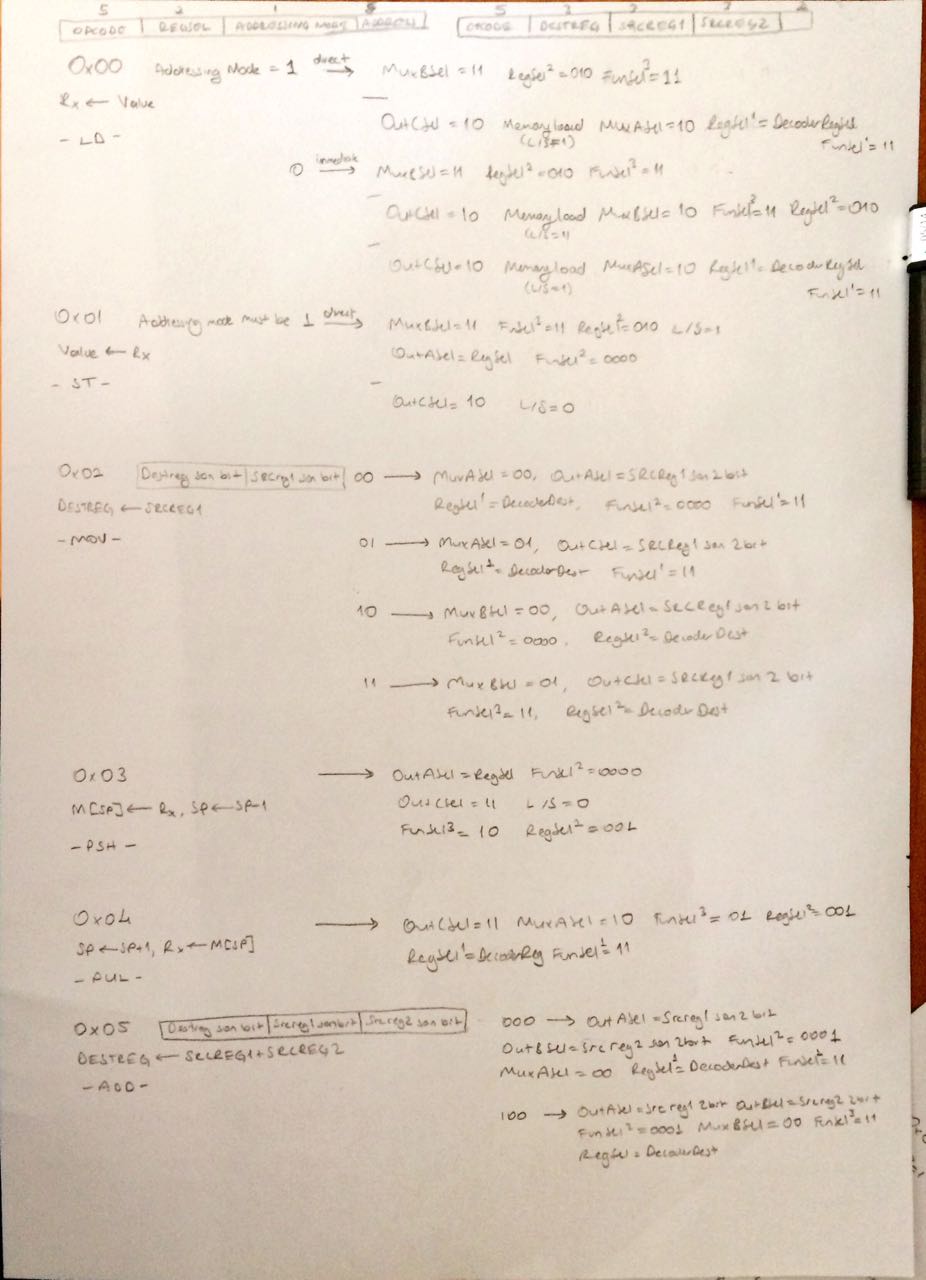 5 2 1 8 5 3 3 3 2
OPCODE REGSEL ADDRESSING MODE ADDRESS OPCODE DESTREG SRCREG1 SRCREG2
0x00 Addressing Mode = 1 direct → MuxBSel = 11 RegSel² = 010 FunSel³ = 11
Rx ← Value
OutCSel = 10 Memory load MuxASel = 10 RegSel¹ = DecoderRegSel
- LD - (L/S=1) FunSel¹ = 11
0 immediate → MuxBSel = 11 RegSel² = 010 FunSel³ = 11
OutCSel = 10 Memory load MuxBSel = 10 FunSel³ = 11 RegSel² = 010
(L/S=1)
OutCSel = 10 Memory load MuxASel = 10 RegSel¹ = DecoderRegSel
(L/S=1) FunSel¹ = 11
0x01 Addressing mode must be 1 direct → MuxBSel = 11 FunSel³ = 11 RegSel² = 010 L/S = 1
Value ← Rx OutASel = RegSel FunSel² = 0000
- ST -
OutCSel = 10 L/S = 0
0x02 Destreg son bit SRCreg1 son bit 00 → MuxASel = 00, OutASel = SRCReg1 son 2 bit
DESTREG ← SRCREG1 RegSel¹ = DecoderDest, FunSel² = 0000 FunSel¹ = 11
- MOV - 01 → MuxASel = 01, OutCSel = SRCReg1 son 2 bit
RegSel¹ = DecoderDest FunSel¹ = 11
10 → MuxBSel = 00, OutASel = SRCReg1 son 2 bit
FunSel² = 0000, RegSel² = DecoderDest
11 → MuxBSel = 01, OutCSel = SRCReg1 son 2 bit
FunSel³ = 11, RegSel² = DecoderDest
0x03 → OutASel = RegSel FunSel² = 0000
M[SP] ← Rx, SP ← SP-1 OutCSel = 11 L/S = 0
FunSel³ = 10 RegSel² = 001
- PSH -
0x04 → OutCSel = 11 MuxASel = 10 FunSel³ = 01 RegSel² = 001
SP ← SP+1, Rx ← M[SP] RegSel¹ = DecoderReg FunSel¹ = 11
- PUL -
0x05 Destreg son bit Srcreg1 son bit Srcreg2 son bit 000 → OutASel = Srcreg1 son 2 bit
DESTREG ← SRCREG1 + SRCREG2 OutBSel = Srcreg2 son 2 bit FunSel² = 0001
- ADD - MuxASel = 00 RegSel¹ = DecoderDest FunSel¹ = 11
100 → OutASel = Srcreg1 2 bit OutBSel = Srcreg2 2 bit
FunSel² = 0001 MuxBSel = 00 FunSel³ = 11
RegSel = DecoderDest